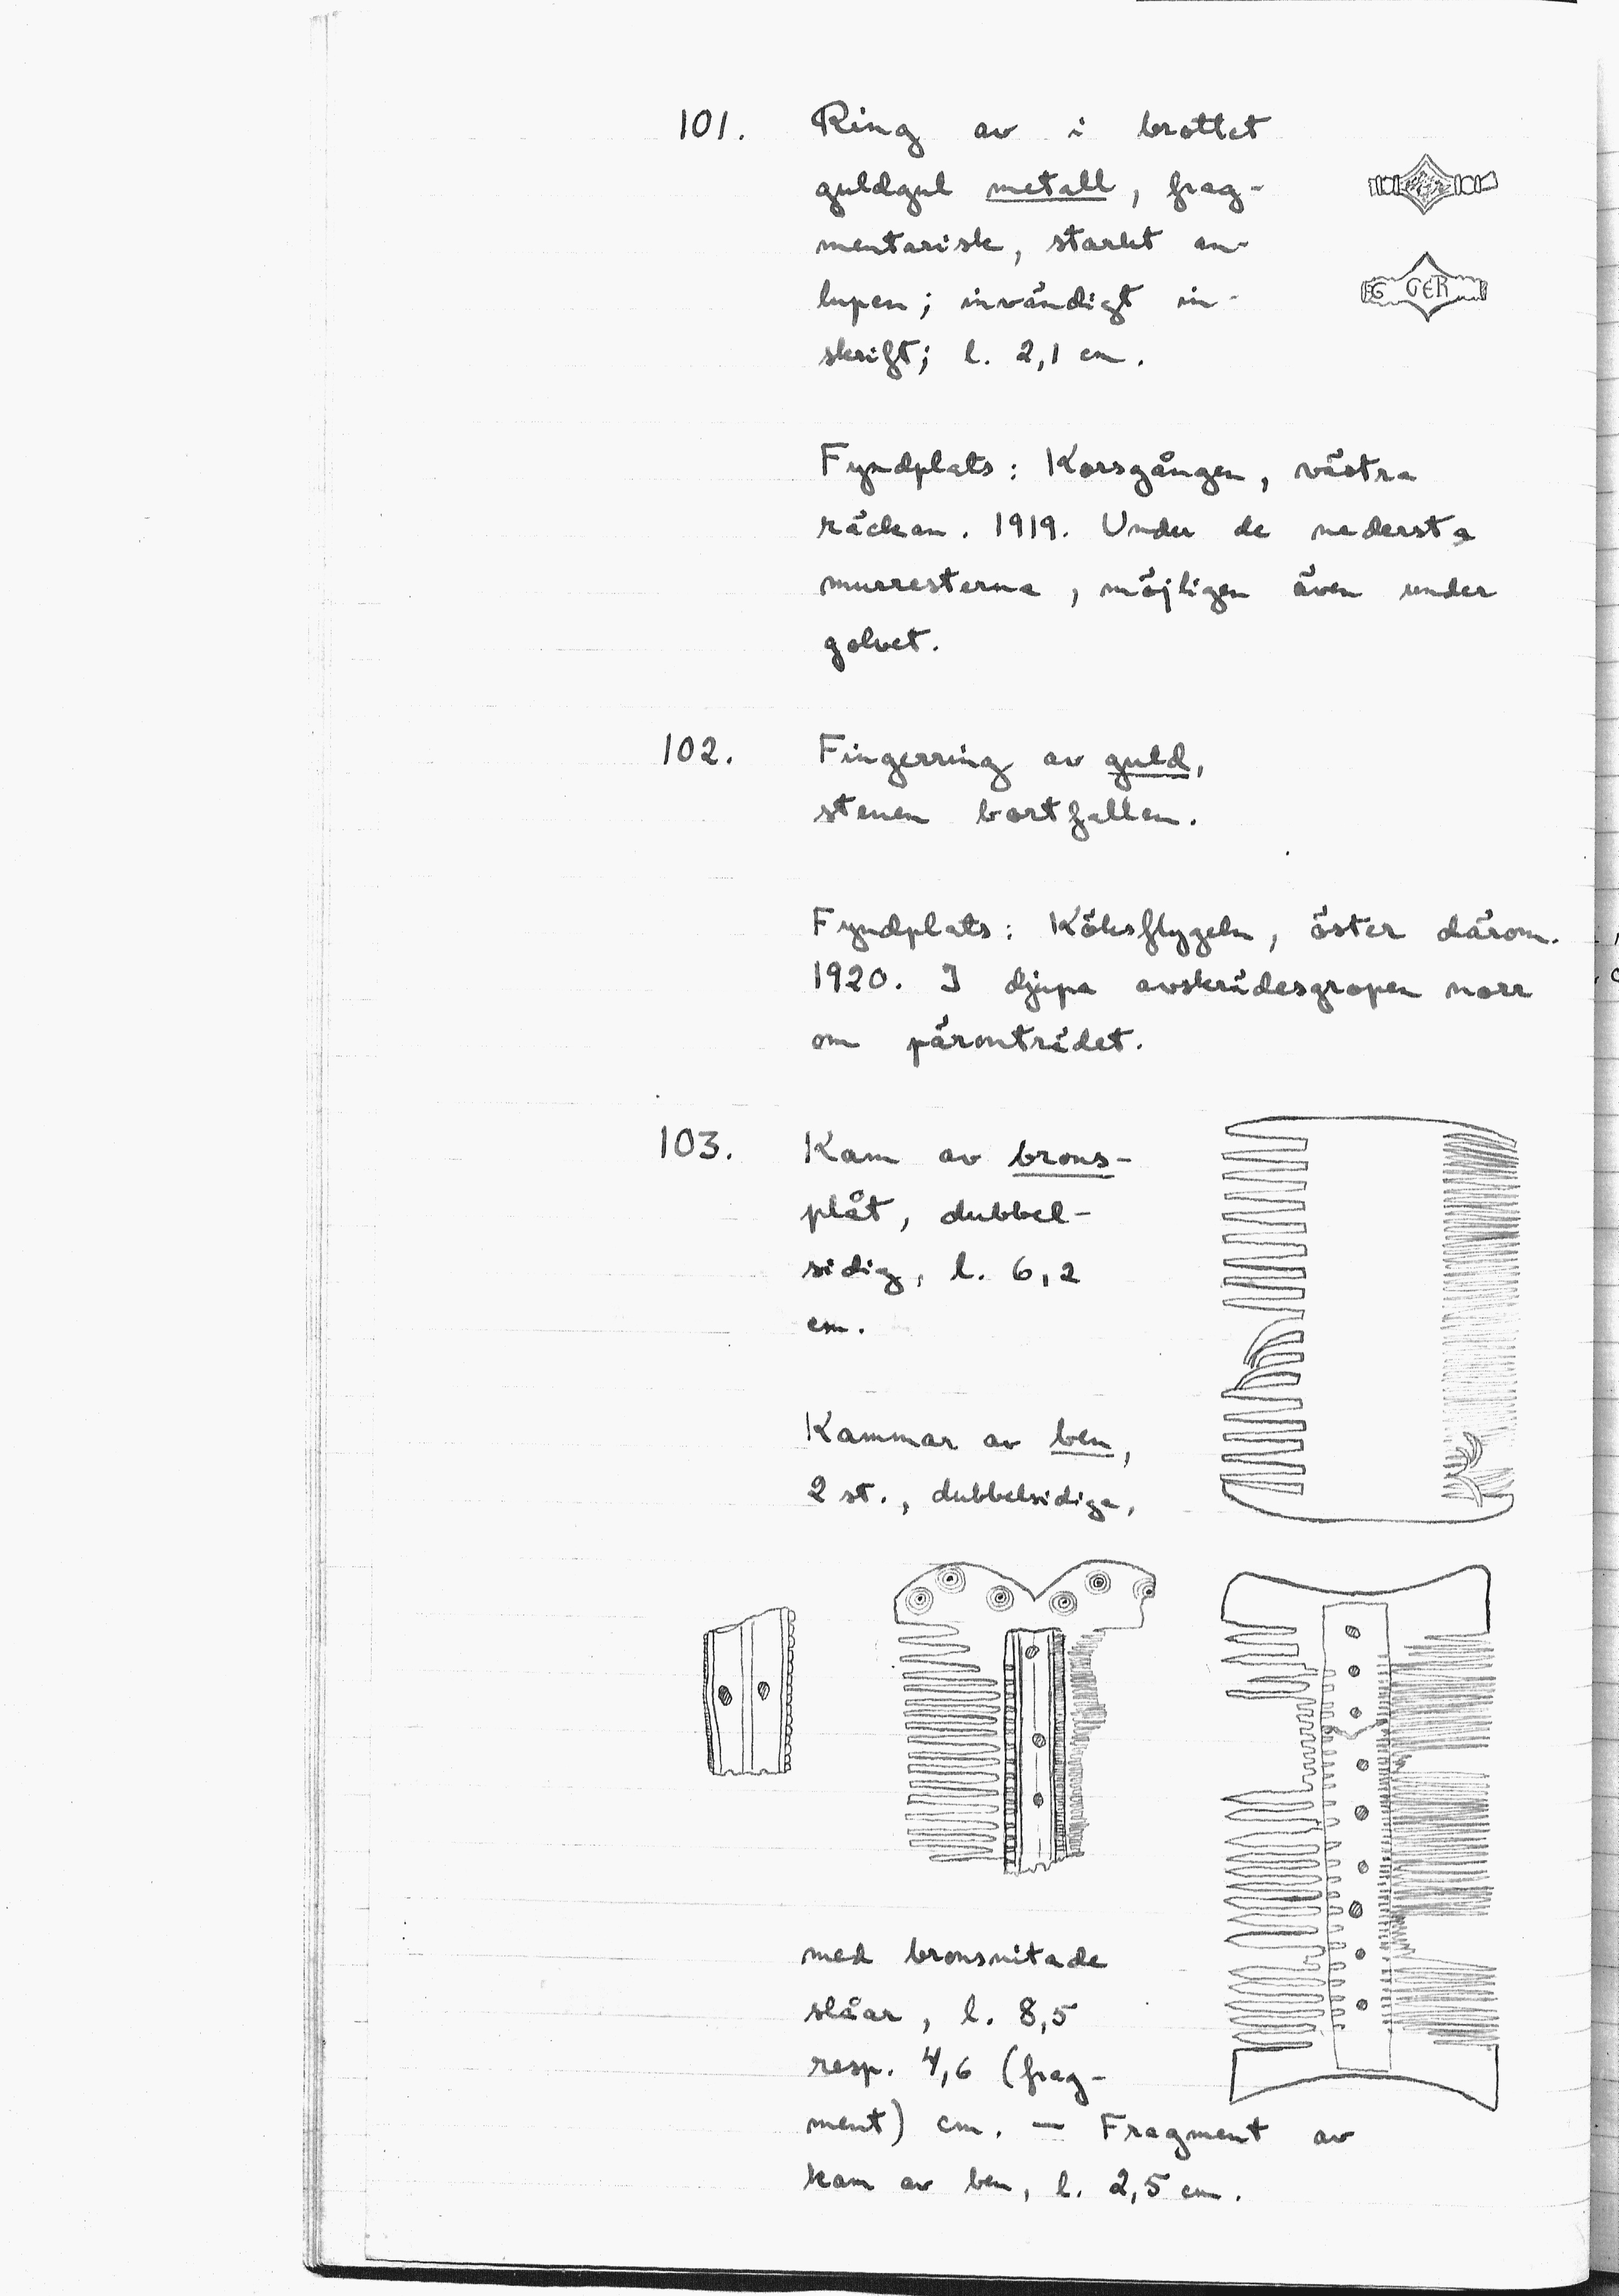 101. Ring av i brottet
guldgul metall, frag-
mentarisk, starkt an-
lupen; invändigt in-
skrift; l. 2,1 cm.
GER
Fyndplats: Korsgången, västra
räckan. 1919. Under de nedersta
murresterna, möjligen även under
golvet.
102. Fingerring av guld,
stenen bortfallen.
Fyndplats: Köksflygeln, öster därom.
1920. I djupa avskrädesgropen norr
om päronträdet.
103. Kam av brons-
plåt, dubbel-
sidig, l. 6,2
cm.
Kammar av ben,
2 st., dubbelsidiga,
med bronsnitade
slåar, l. 8,5
resp. 4,6 (frag-
ment) cm. — Fragment av
kam av ben, l. 2,5 cm.